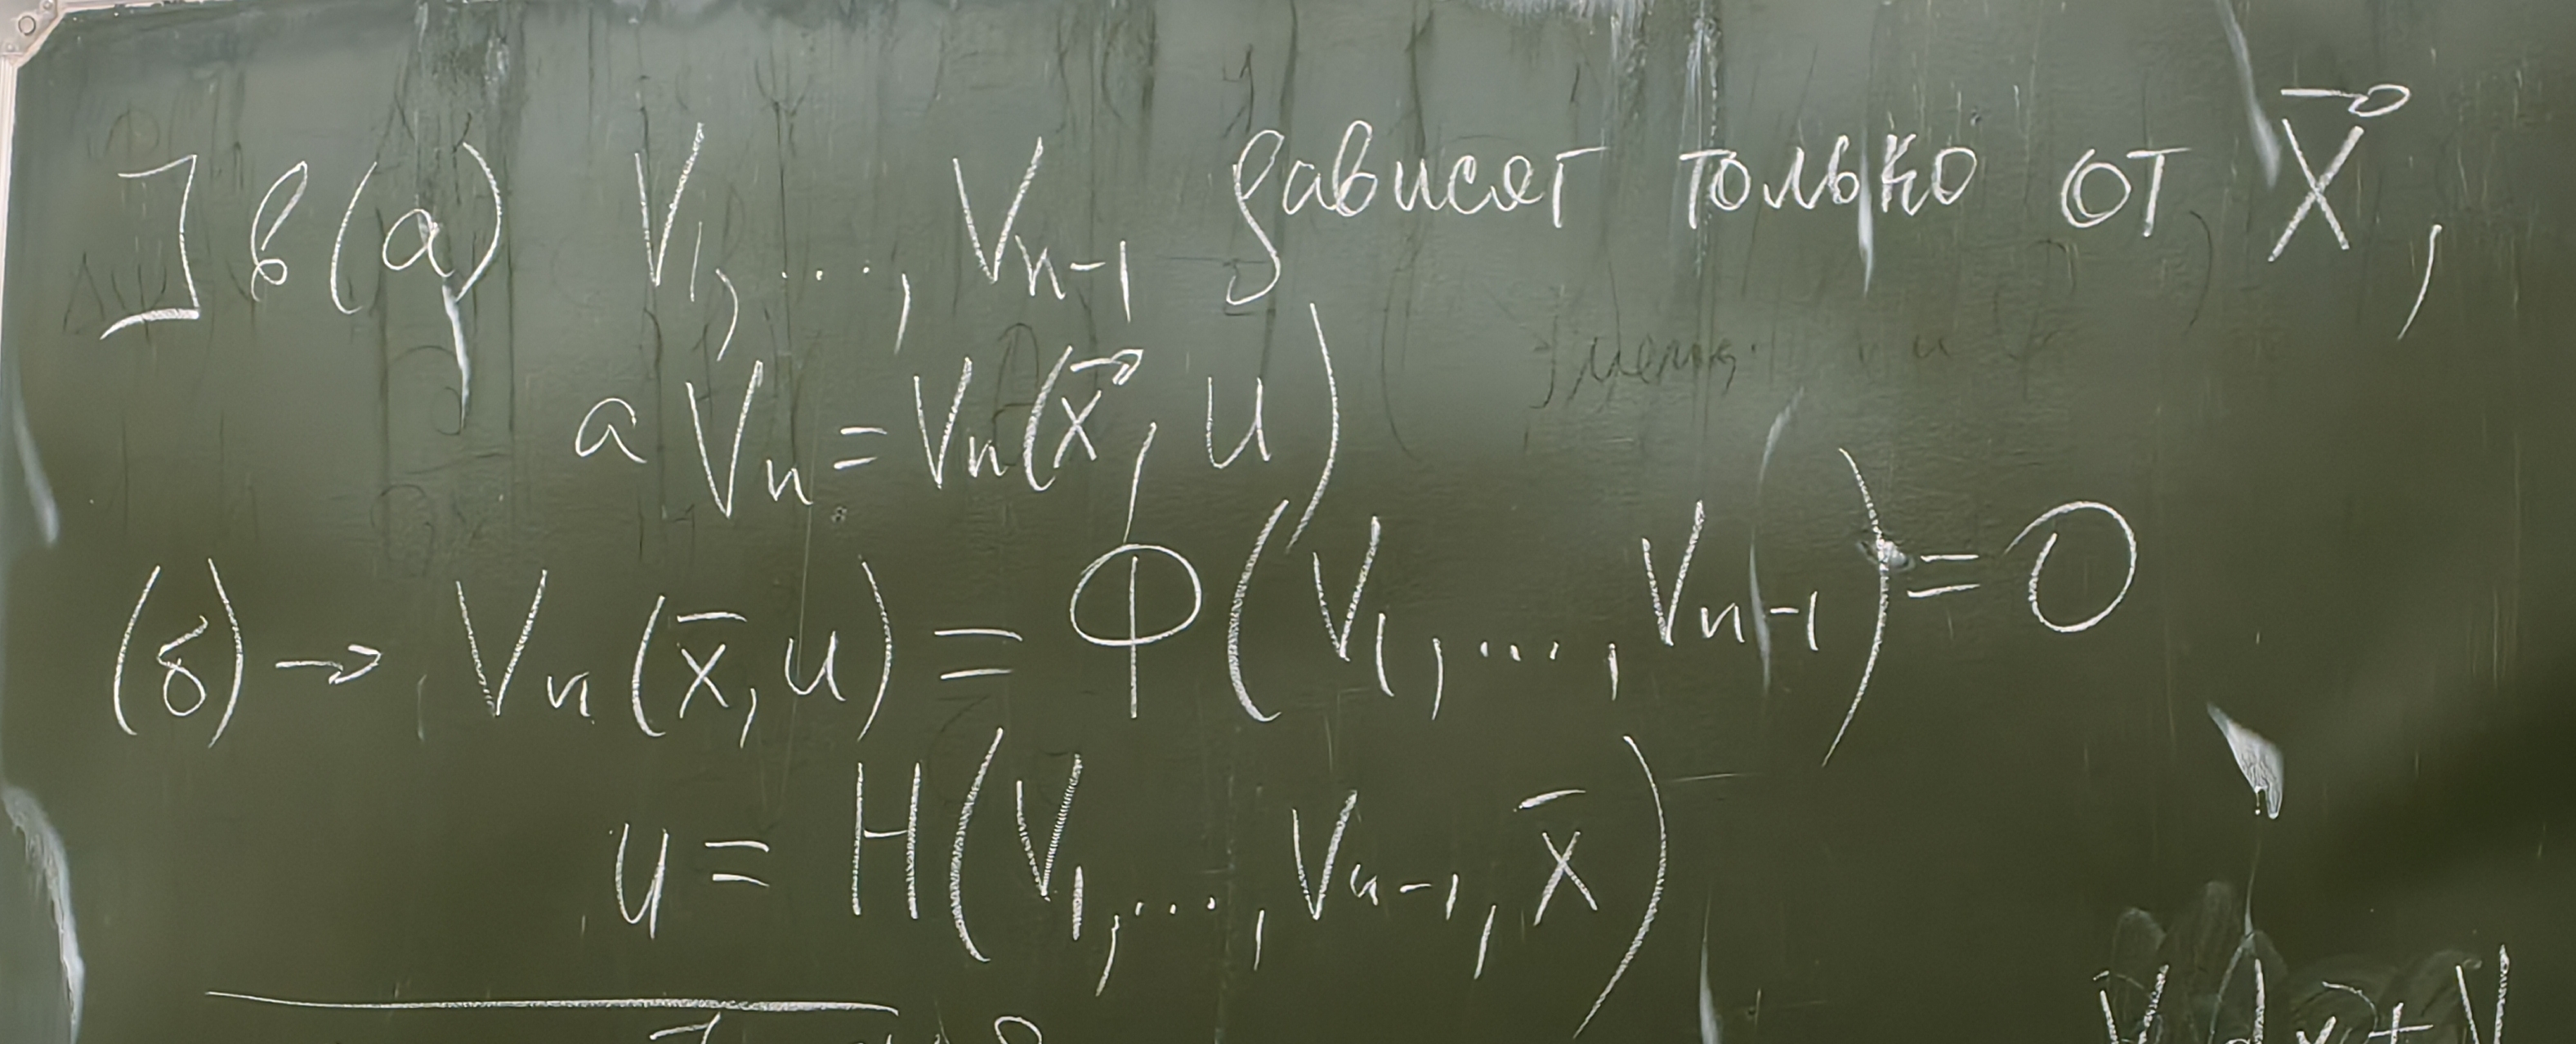 ] в (а) V₁, ..., Vₙ₋₁ зависят только от x⃗,
а Vₙ = Vₙ(x⃗, u)
(б) → Vₙ(x̄, u) = Ф(V₁, ..., Vₙ₋₁) = 0
u = H(V₁, ..., Vₙ₋₁, x̄)